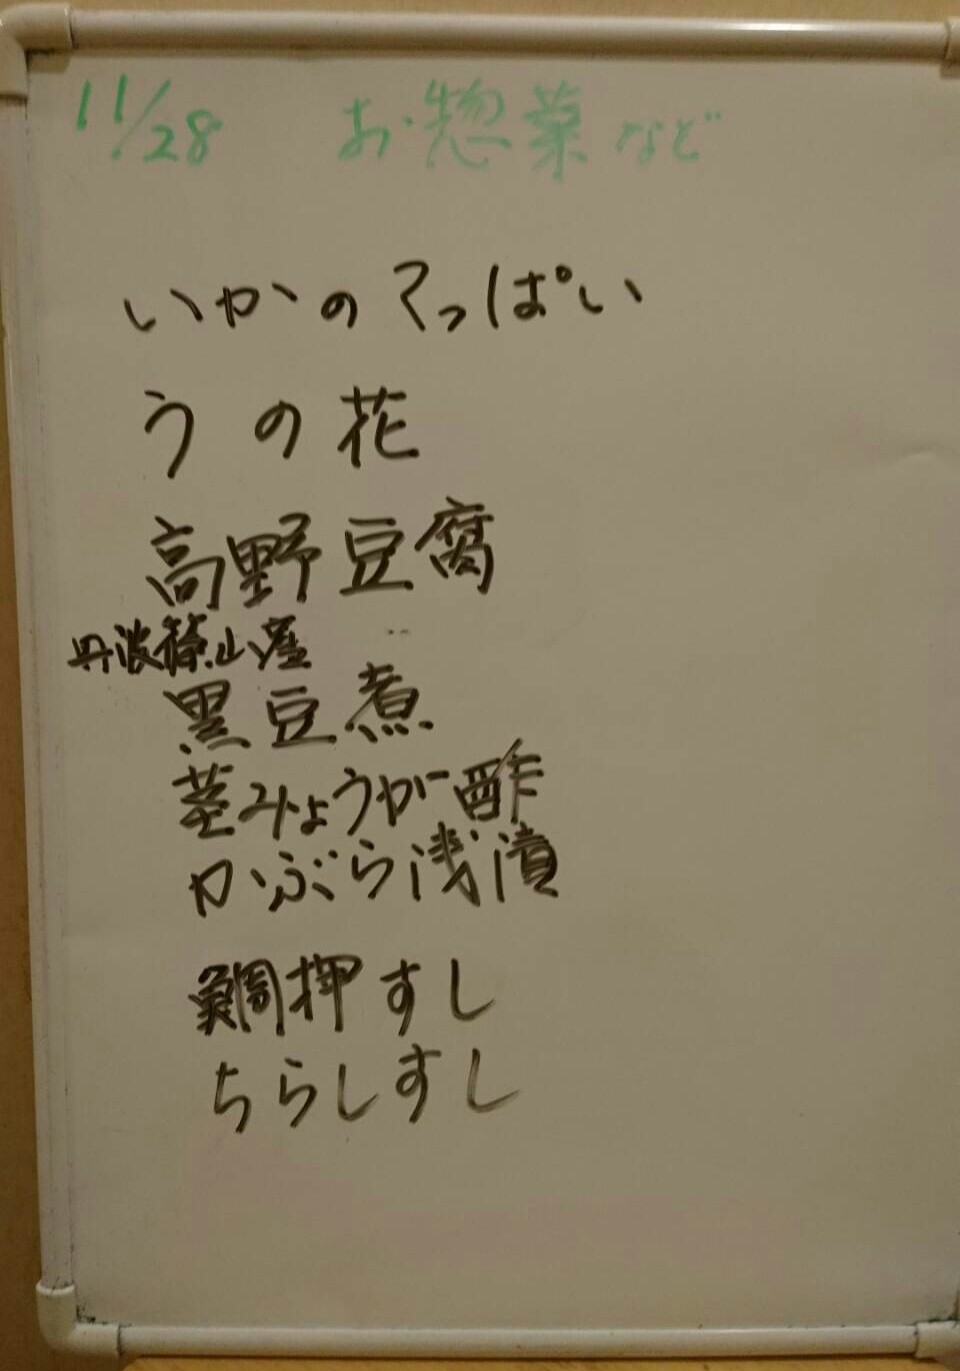 11/28 お惣菜など
いかのてっぱい
うの花
高野豆腐
丹波篠山産
黒豆煮
茎みょうが酢
かぶら浅漬
鯛押すし
ちらしすし